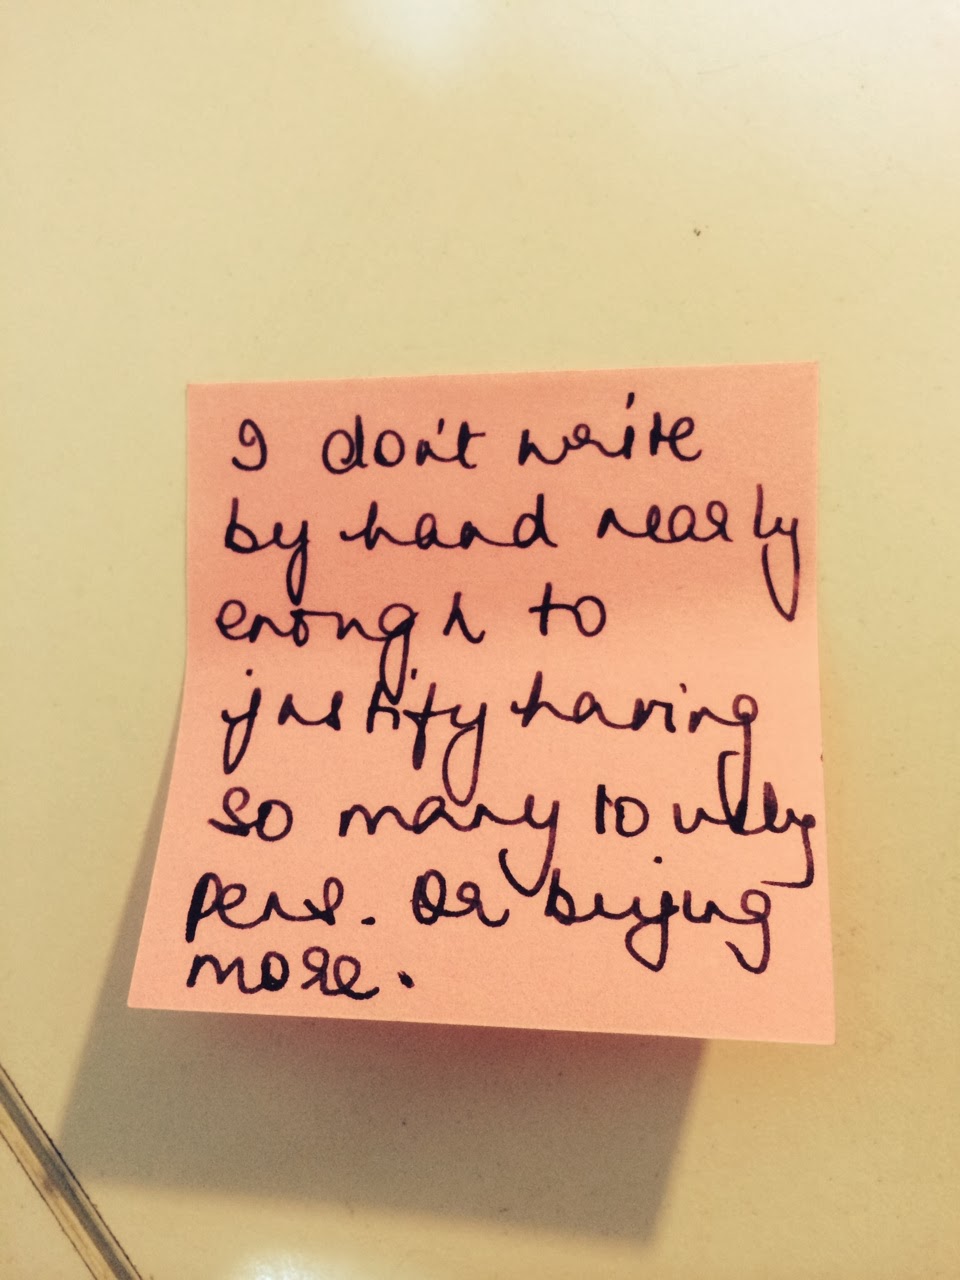 I don't write
by hand nearly
enough to
justify having
so many lovely
pens. Or buying
more.